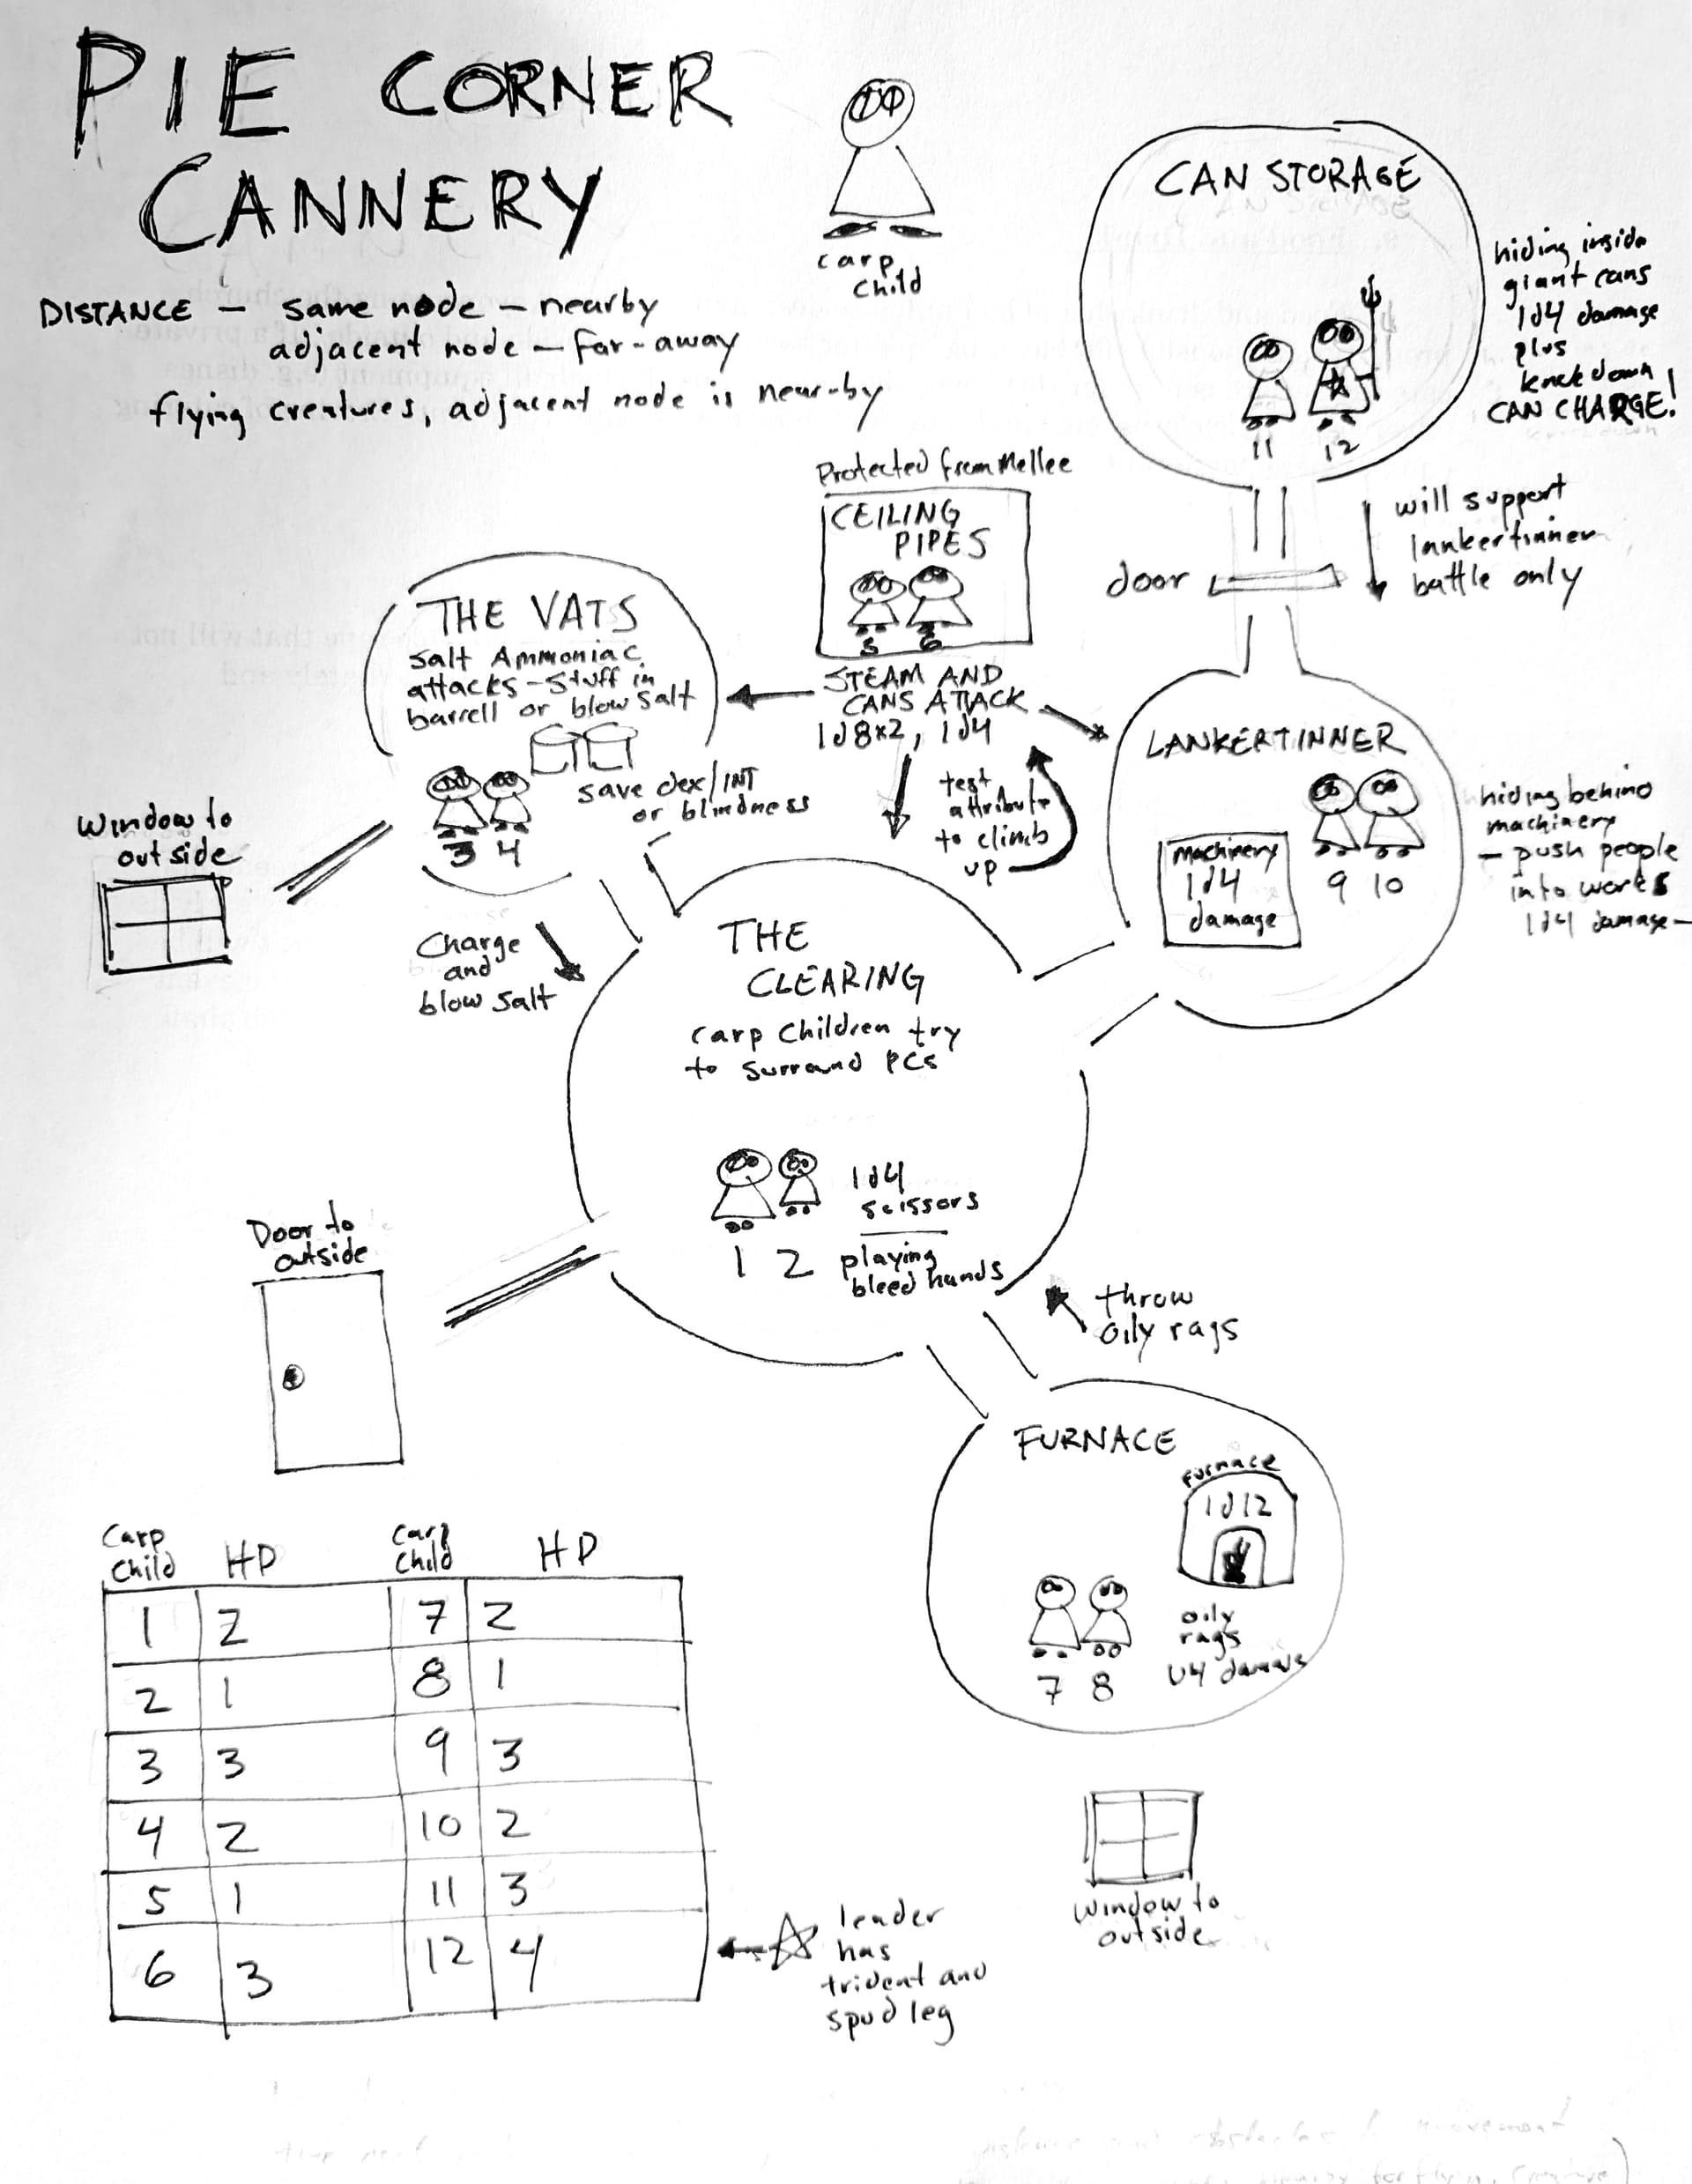 PIE CORNER
CANNERY
carp
child
DISTANCE - same node - nearby
adjacent node - far-away
flying creatures, adjacent node is near-by
CAN STORAGE
11 12
hiding inside
giant cans
1d4 damage
plus
knockdown
CAN CHARGE!
will support
lankertinner
battle only
door
Protected from Mellee
CEILING
PIPES
5 6
STEAM AND
CANS ATTACK
1d8x2, 1d4
test
attribute
to climb
up
THE VATS
Salt Ammoniac
attacks - stuff in
barrell or blow salt
save dex/INT
or blindness
3 4
Window to
outside
Charge
and
blow salt
LANKERTINNER
machinery
1d4
damage
9 10
hiding behind
machinery
- push people
into works
1d4 damage -
THE
CLEARING
carp children try
to surround PCs
1d4
scissors
playing
bleed hands
1 2
Door to
outside
throw
oily rags
FURNACE
furnace
1d12
oily
rags
1d4 damage
7 8
window to
outside
Carp
Child HP Carp
Child HP
1 2 7 2
2 1 8 1
3 3 9 3
4 2 10 2
5 1 11 3
6 3 12 4
leader
has
trident and
spud leg